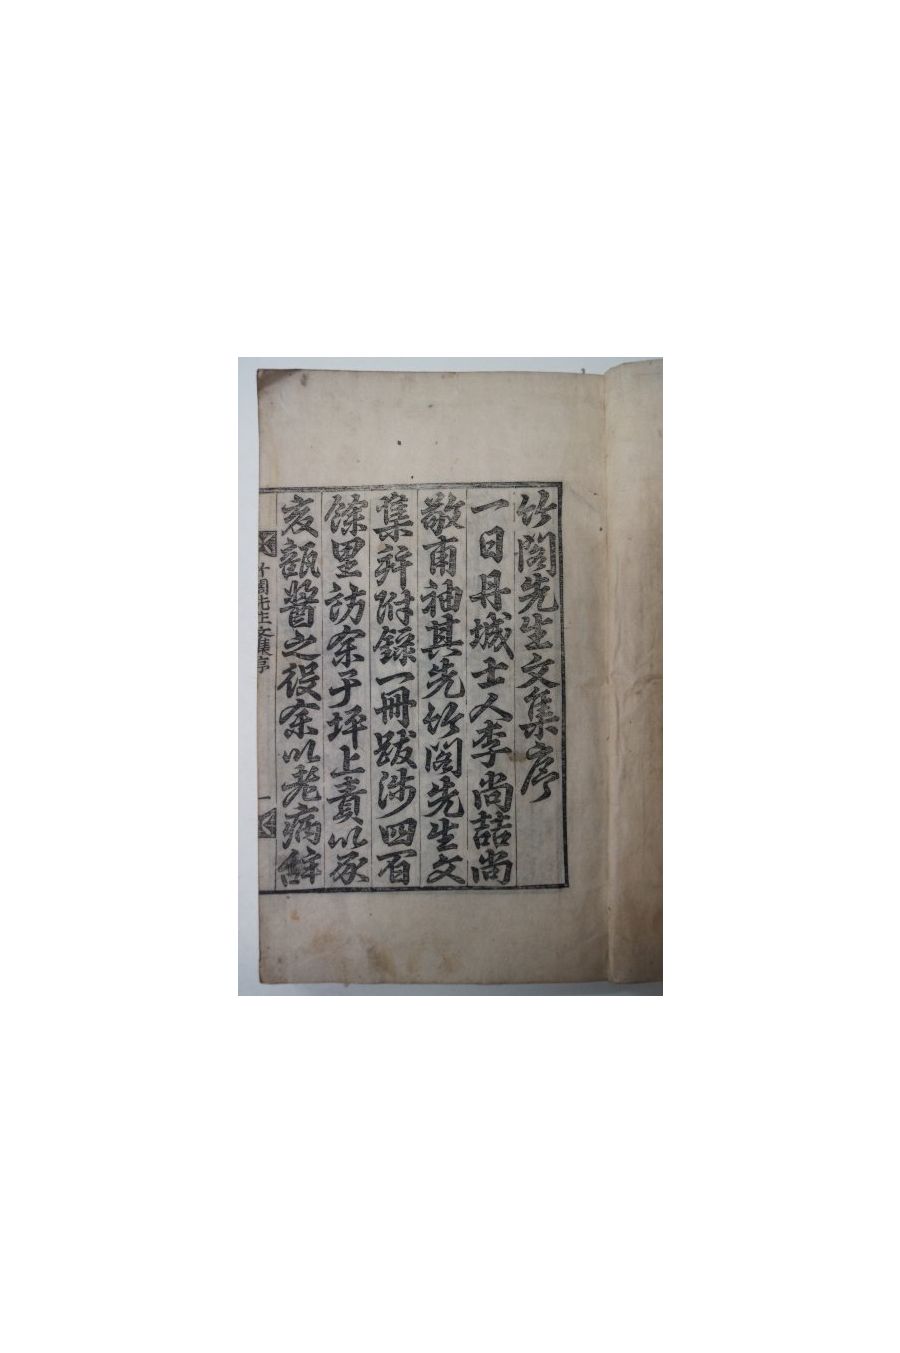 竹閣先生文集序
一日丹城士人李尚喆尚
敬甫袖其先竹閣先生文
集并附錄一冊跋涉四百
餘里訪余于坪上責以丞
亥瓿醬之役余以老病辭
竹閣先生文集序 一